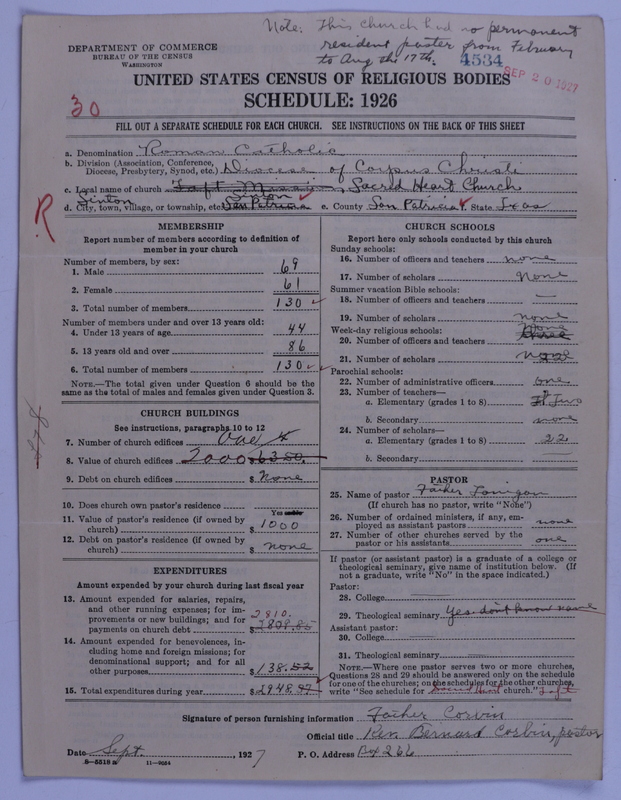 Note: This church had no permanent
resident paster from February
to Aug the 17th.
DEPARTMENT OF COMMERCE
BUREAU OF THE CENSUS
WASHINGTON
4534
SEP 20 1927
UNITED STATES CENSUS OF RELIGIOUS BODIES
SCHEDULE: 1926
30
FILL OUT A SEPARATE SCHEDULE FOR EACH CHURCH. SEE INSTRUCTIONS ON THE BACK OF THIS SHEET
a. Denomination Roman Catholic
b. Division (Association, Conference, Diocese, Presbytery, Synod, etc.) Diocese of Corpus Christi
c. Local name of church Taft Mission, Sacred Heart Church
Sinton
d. City, town, village, or township, etc. San Patricia e. County San Patricia State Texas
R
MEMBERSHIP
Report number of members according to definition of
member in your church
Number of members, by sex:
1. Male 69
2. Female 61
3. Total number of members 130
Number of members under and over 13 years old:
4. Under 13 years of age 44
5. 13 years old and over 86
6. Total number of members 130
NOTE.—The total given under Question 6 should be the
same as the total of males and females given under Question 3.
CHURCH BUILDINGS
See instructions, paragraphs 10 to 12
7. Number of church edifices One
8. Value of church edifices 7000
9. Debt on church edifices $ None
10. Does church own pastor's residence Yes
11. Value of pastor's residence (if owned by
church) $ 1000
12. Debt on pastor's residence (if owned by
church) $ none
EXPENDITURES
Amount expended by your church during last fiscal year
13. Amount expended for salaries, repairs,
and other running expenses; for im-
provements or new buildings; and for
payments on church debt 2810.
$ 2809.85
14. Amount expended for benevolences, in-
cluding home and foreign missions; for
denominational support; and for all
other purposes $ 138.52
15. Total expenditures during year $ 2948.
CHURCH SCHOOLS
Report here only schools conducted by this church
Sunday schools:
16. Number of officers and teachers none
17. Number of scholars None
Summer vacation Bible schools:
18. Number of officers and teachers —
19. Number of scholars none
Week-day religious schools: None
20. Number of officers and teachers three
21. Number of scholars
Parochial schools:
22. Number of administrative officers one
23. Number of teachers—
a. Elementary (grades 1 to 8) Two
b. Secondary none
24. Number of scholars—
a. Elementary (grades 1 to 8) 22
b. Secondary —
PASTOR
25. Name of pastor Father
(If church has no pastor, write "None")
26. Number of ordained ministers, if any, em-
ployed as assistant pastors none
27. Number of other churches served by the
pastor or his assistants one
If pastor (or assistant pastor) is a graduate of a college or
theological seminary, give name of institution below. (If
not a graduate, write "No" in the space indicated.)
Pastor:
28. College
29. Theological seminary Yes don't know name
Assistant pastor:
30. College
31. Theological seminary
NOTE.—Where one pastor serves two or more churches,
Questions 28 and 29 should be answered only on the schedule
for one of the churches; on the schedules for the other churches,
write "See schedule for Sacred Heart church." Taft
Signature of person furnishing information Father Corvin
Official title Rev. Bernard Corbin, pastor
Date Sept. , 1927 P. O. Address Box 266
8—5518 a 11—9664